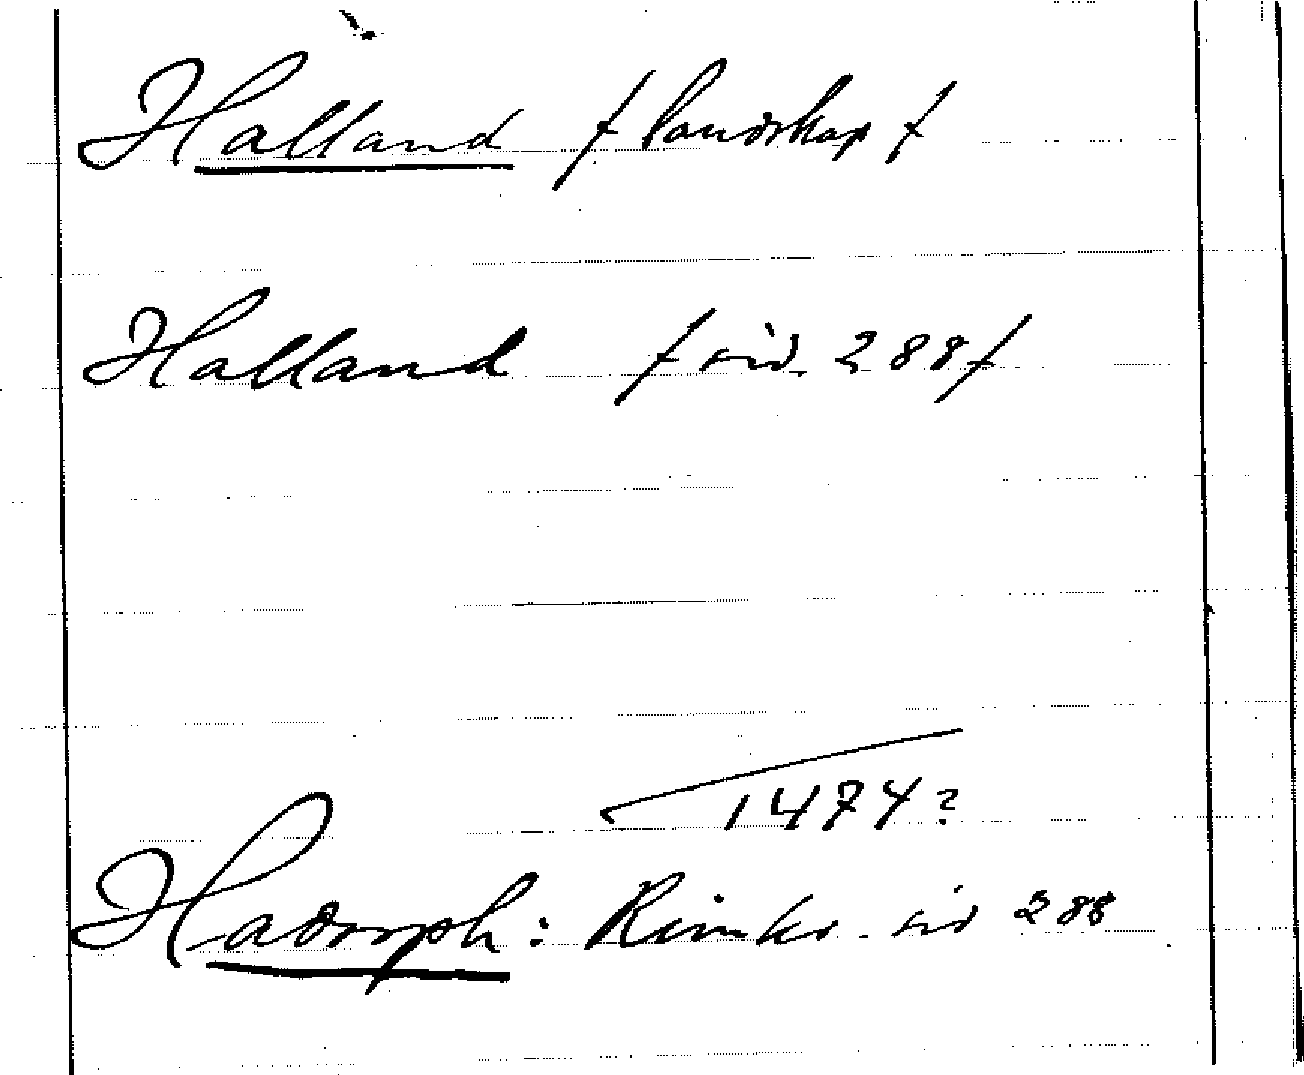 Halland / landskap /
Halland / sid. 288 /
1474?
Hadorph: Rimkr. sid 288